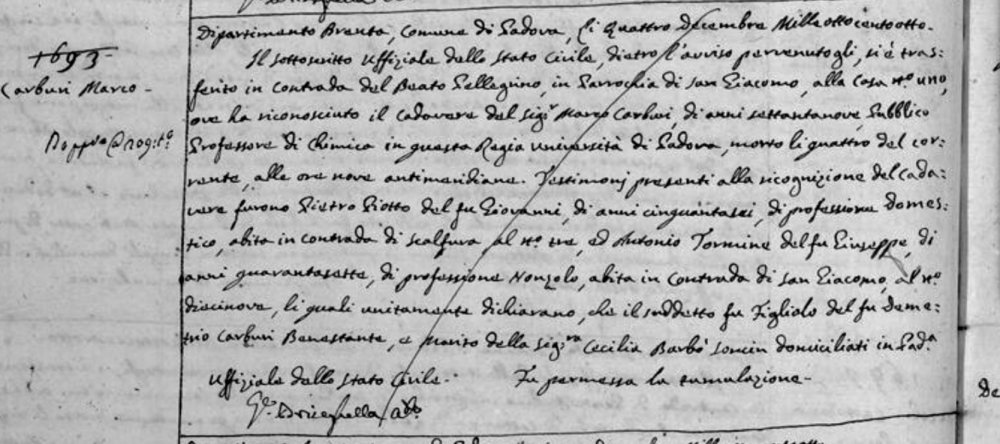 1693
Carburi Marco -
Doppia
Dipartimento Brenta, Comune di Padova, li quattro Decembre Mille ottocentootto.
Il sottoscritto Uffiziale dello Stato Civile, dietro l'avviso pervenutogli, si è tras=
ferito in contrada del Beato Pellegrino, in Parrochia di San Giacomo, alla Casa N.o uno,
ove ha riconosciuto il cadavere del Sig.r Marco Carburi, di anni settantanove, Pubblico
Professore di Chimica in questa Regia Università di Padova, morto li quattro del cor=
rente, alle ore nove antimeridiane. Testimonj presenti alla ricognizione del Cada=
vere furono Pietro Piotto del fu Giovanni, di anni cinquantasei, di professione domes=
tico, abita in contrada di Scalfura al N.o tre, ed Antonio Tormine del fu Giuseppe, di
anni quarantasette, di professione Nonzolo, abita in Contrada di San Giacomo, al N.o
diecinove, li quali unitamente dichiarano, che il suddetto fu Figliolo del fu Deme=
trio Carburi Benestante, e marito della Sig.ra Cecilia Barbò Soncin domiciliati in Pad.a
Uffiziale dello Stato Civile. Fu permessa la tumulazione -
De